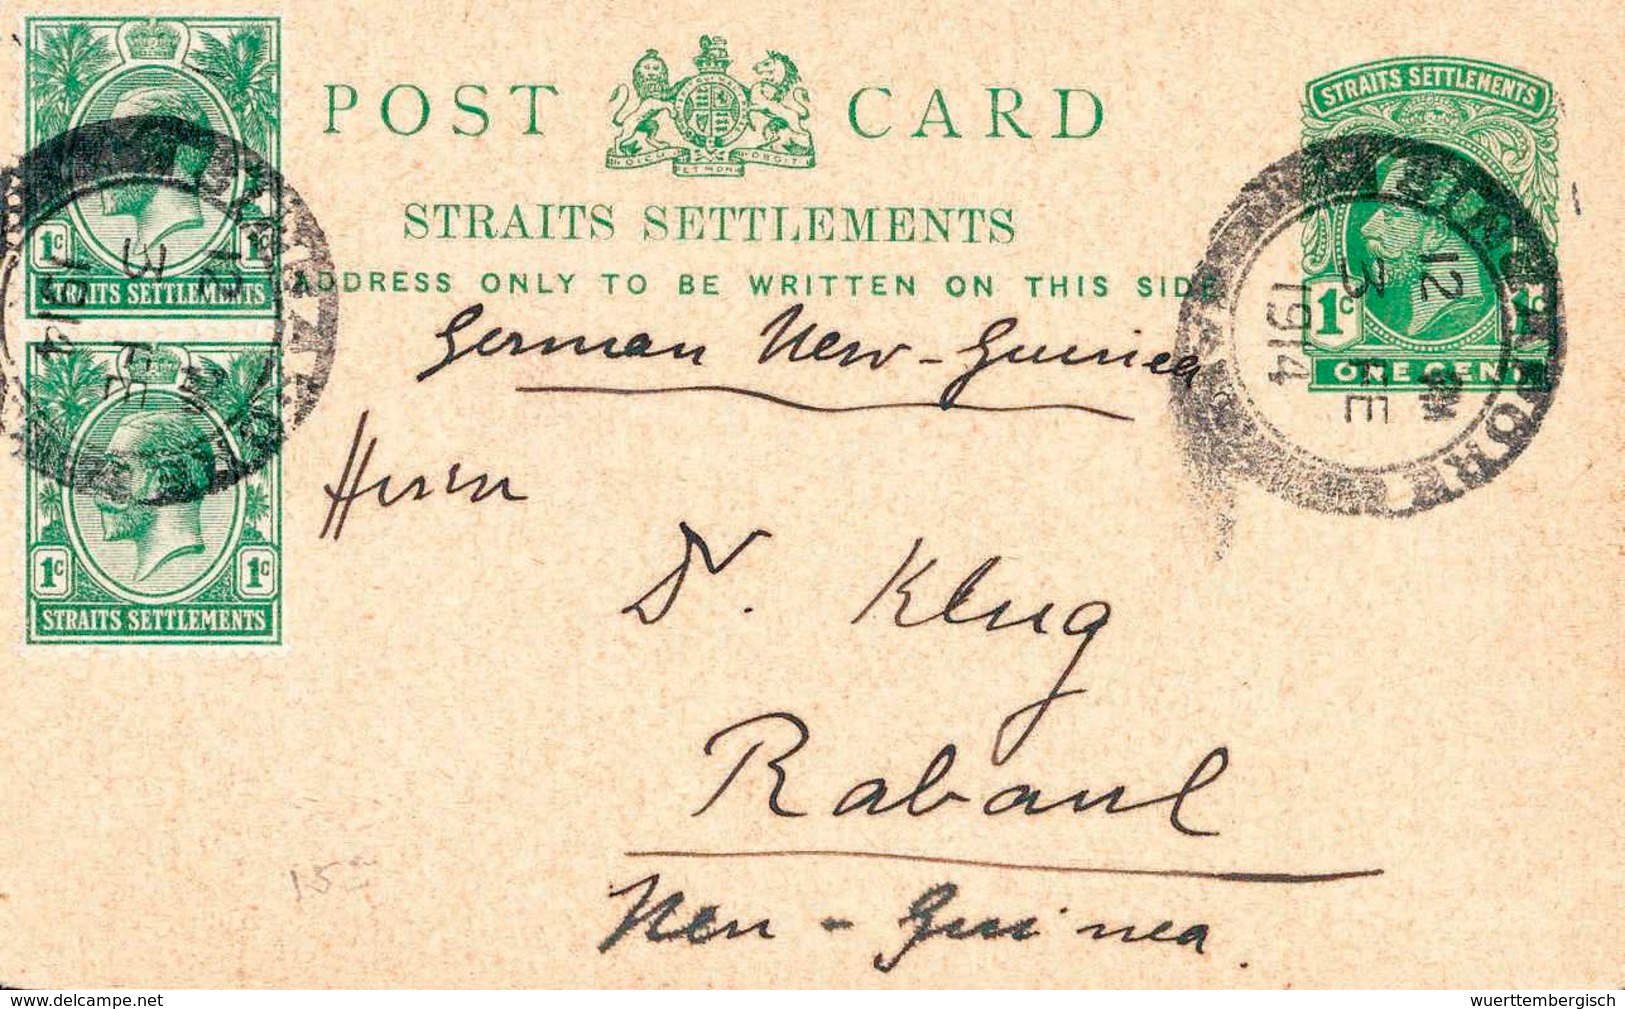 POST CARD
STRAITS SETTLEMENTS
ADDRESS ONLY TO BE WRITTEN ON THIS SIDE
German New-Guinea
Herrn
Dr. Klug
Rabaul
Neu-Guinea.
15
1c 1c
STRAITS SETTLEMENTS
1c 1c
STRAITS SETTLEMENTS
STRAITS SETTLEMENTS
1c 1c
ONE CENT
SINGAPORE
12 PM
3 FE
1914
SINGAPORE
12 PM
3 FE
1914
www.delcampe.net
wuerttembergisch